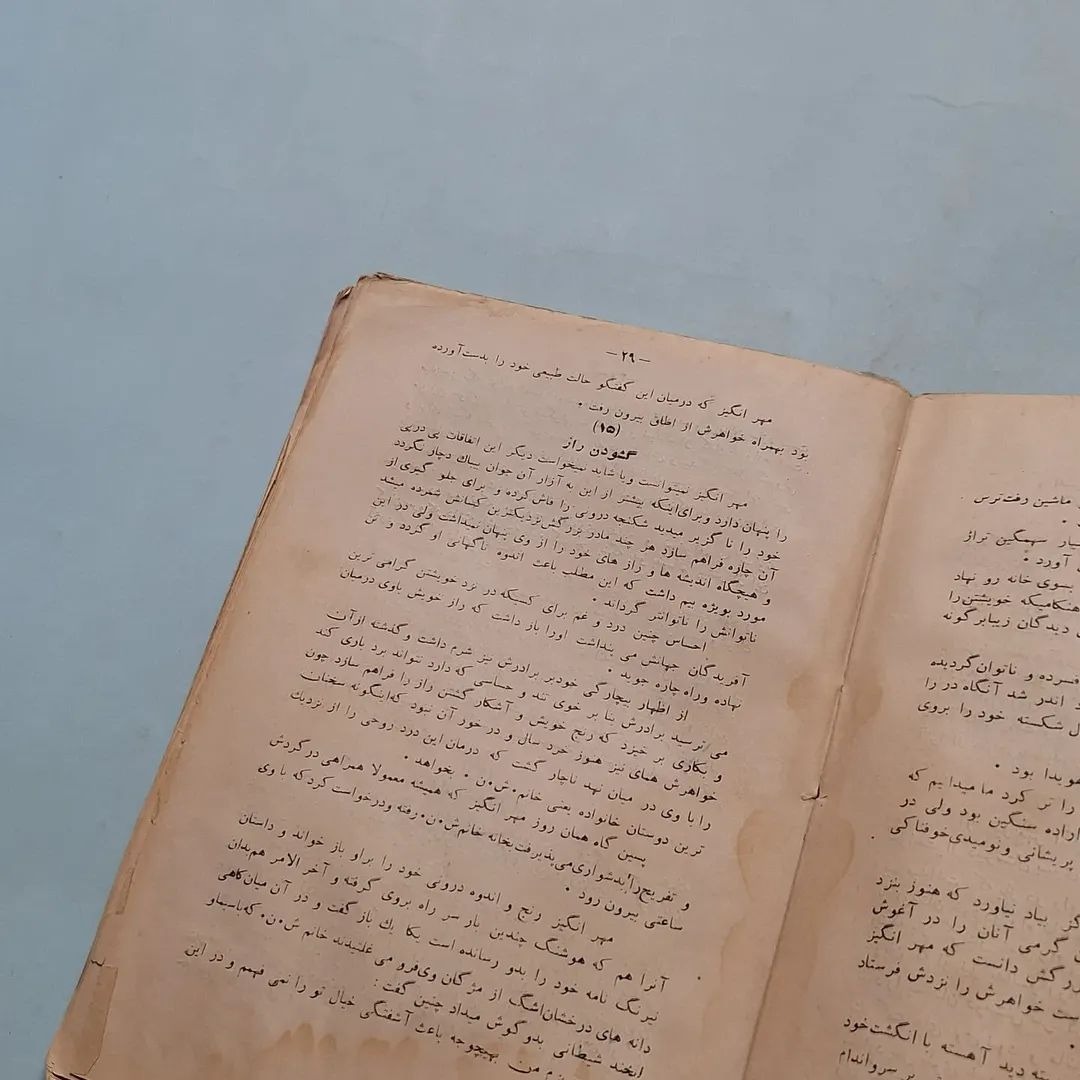 — ۲۹ —
مهر انگیز که درمیان این گفتگو حالت طبیعی خود را بدست‌آورده
بود بهمراه خواهرش از اطاق بیرون رفت .
(۱۵)
گشودن راز
مهر انگیز نمیتوانست ویا شاید نمیخواست دیگر این اتفاقات پی درپی
را پنهان دارد وبرای‌اینکه بیشتر از این به آزار آن جوان بیباك دچار نگردد
خود را نا گزیر میدید شکنجه درونی را فاش‌کرده و برای جلو گیری از
آن چاره فراهم سازد هر چند مادر بزرگش‌نزدیکترین کسانش شمرده میشد
و هیچگاه اندیشه ها و راز های خود را از وی پنهان نمیداشت ولی در این
مورد بویژه بیم داشت که این مطلب باعث اندوه ناگهانی او گردد و تن
ناتوانش را ناتوانتر گرداند .
احساس چنین درد و غم برای کسیکه در نزد خویشتن گرامی ترین
آفریدگان جهانش می پنداشت اورا باز داشت که راز خویش باوی درمیان
نهاده وراه چاره جوید .
از اظهار بیچارگی خودبر برادرش نیز شرم داشت وگذشته ازآن
می ترسید برادرش بنا بر خوی تند و حساسی که دارد نتواند برد باری کند
و بکاری بر خیزد که رنج خویش و آشکار گشتن راز را فراهم سازد چون
خواهرش همای نیز هنوز خرد سال و در خور آن نبود که‌اینگونه سخنان
را با وی در میان نهد ناچار گشت که درمان این درد روحی را از نزدیك
ترین دوستان خانواده یعنی خانم ش.ن . بخواهد .
پسین گاه همان روز مهر انگیز که همیشه معمولا همراهی درگردش
و تفریح‌را بدشواری‌می‌پذیرفت‌بخانه خانم‌ش.ن.رفته ودرخواست کردکه با وی
ساعتی بیرون رود .
مهر انگیز رنج و اندوه درونی خود را براو باز خواند و داستان
آنرا هم که هوشنگ چندین بار سر راه بروی گرفته و آخر الامر هم‌بدان
نیرنگ نامه خود را بدو رسانده است یکا یك باز گفت و در آن میان‌گاهی
دانه های درخشان‌اشگ از مژگان وی‌فرو می غلتیدند خانم ش.ن. که‌باسیماو
لبخند شیطانی بدو گوش میداد چنین گفت :
من بهیچوجه باعث آشفتگی خیال تو را نمی فهمم و در این
ماشین رفت‌ترس
سهمگین تراز
آورد .
بسوی خانه رو نهاد
هنگامیکه خویشتن‌را
دیدگان زیبابرگونه
فسرده و ناتوان‌گردیده
اندر شد آنگاه در را
شکسته خود را بروی
هویدا بود .
را تر کرد ما میدایم که
اراده سنگین بود ولی در
پریشانی ونومیدی‌خوفناکی
بیاد نیاورد که هنوز بنزد
گرمی آنان را در آغوش
دانست که مهر انگیز
خواهرش را نزدش فرستاد
دید آهسته با انگشت‌خود
بر سرواندام